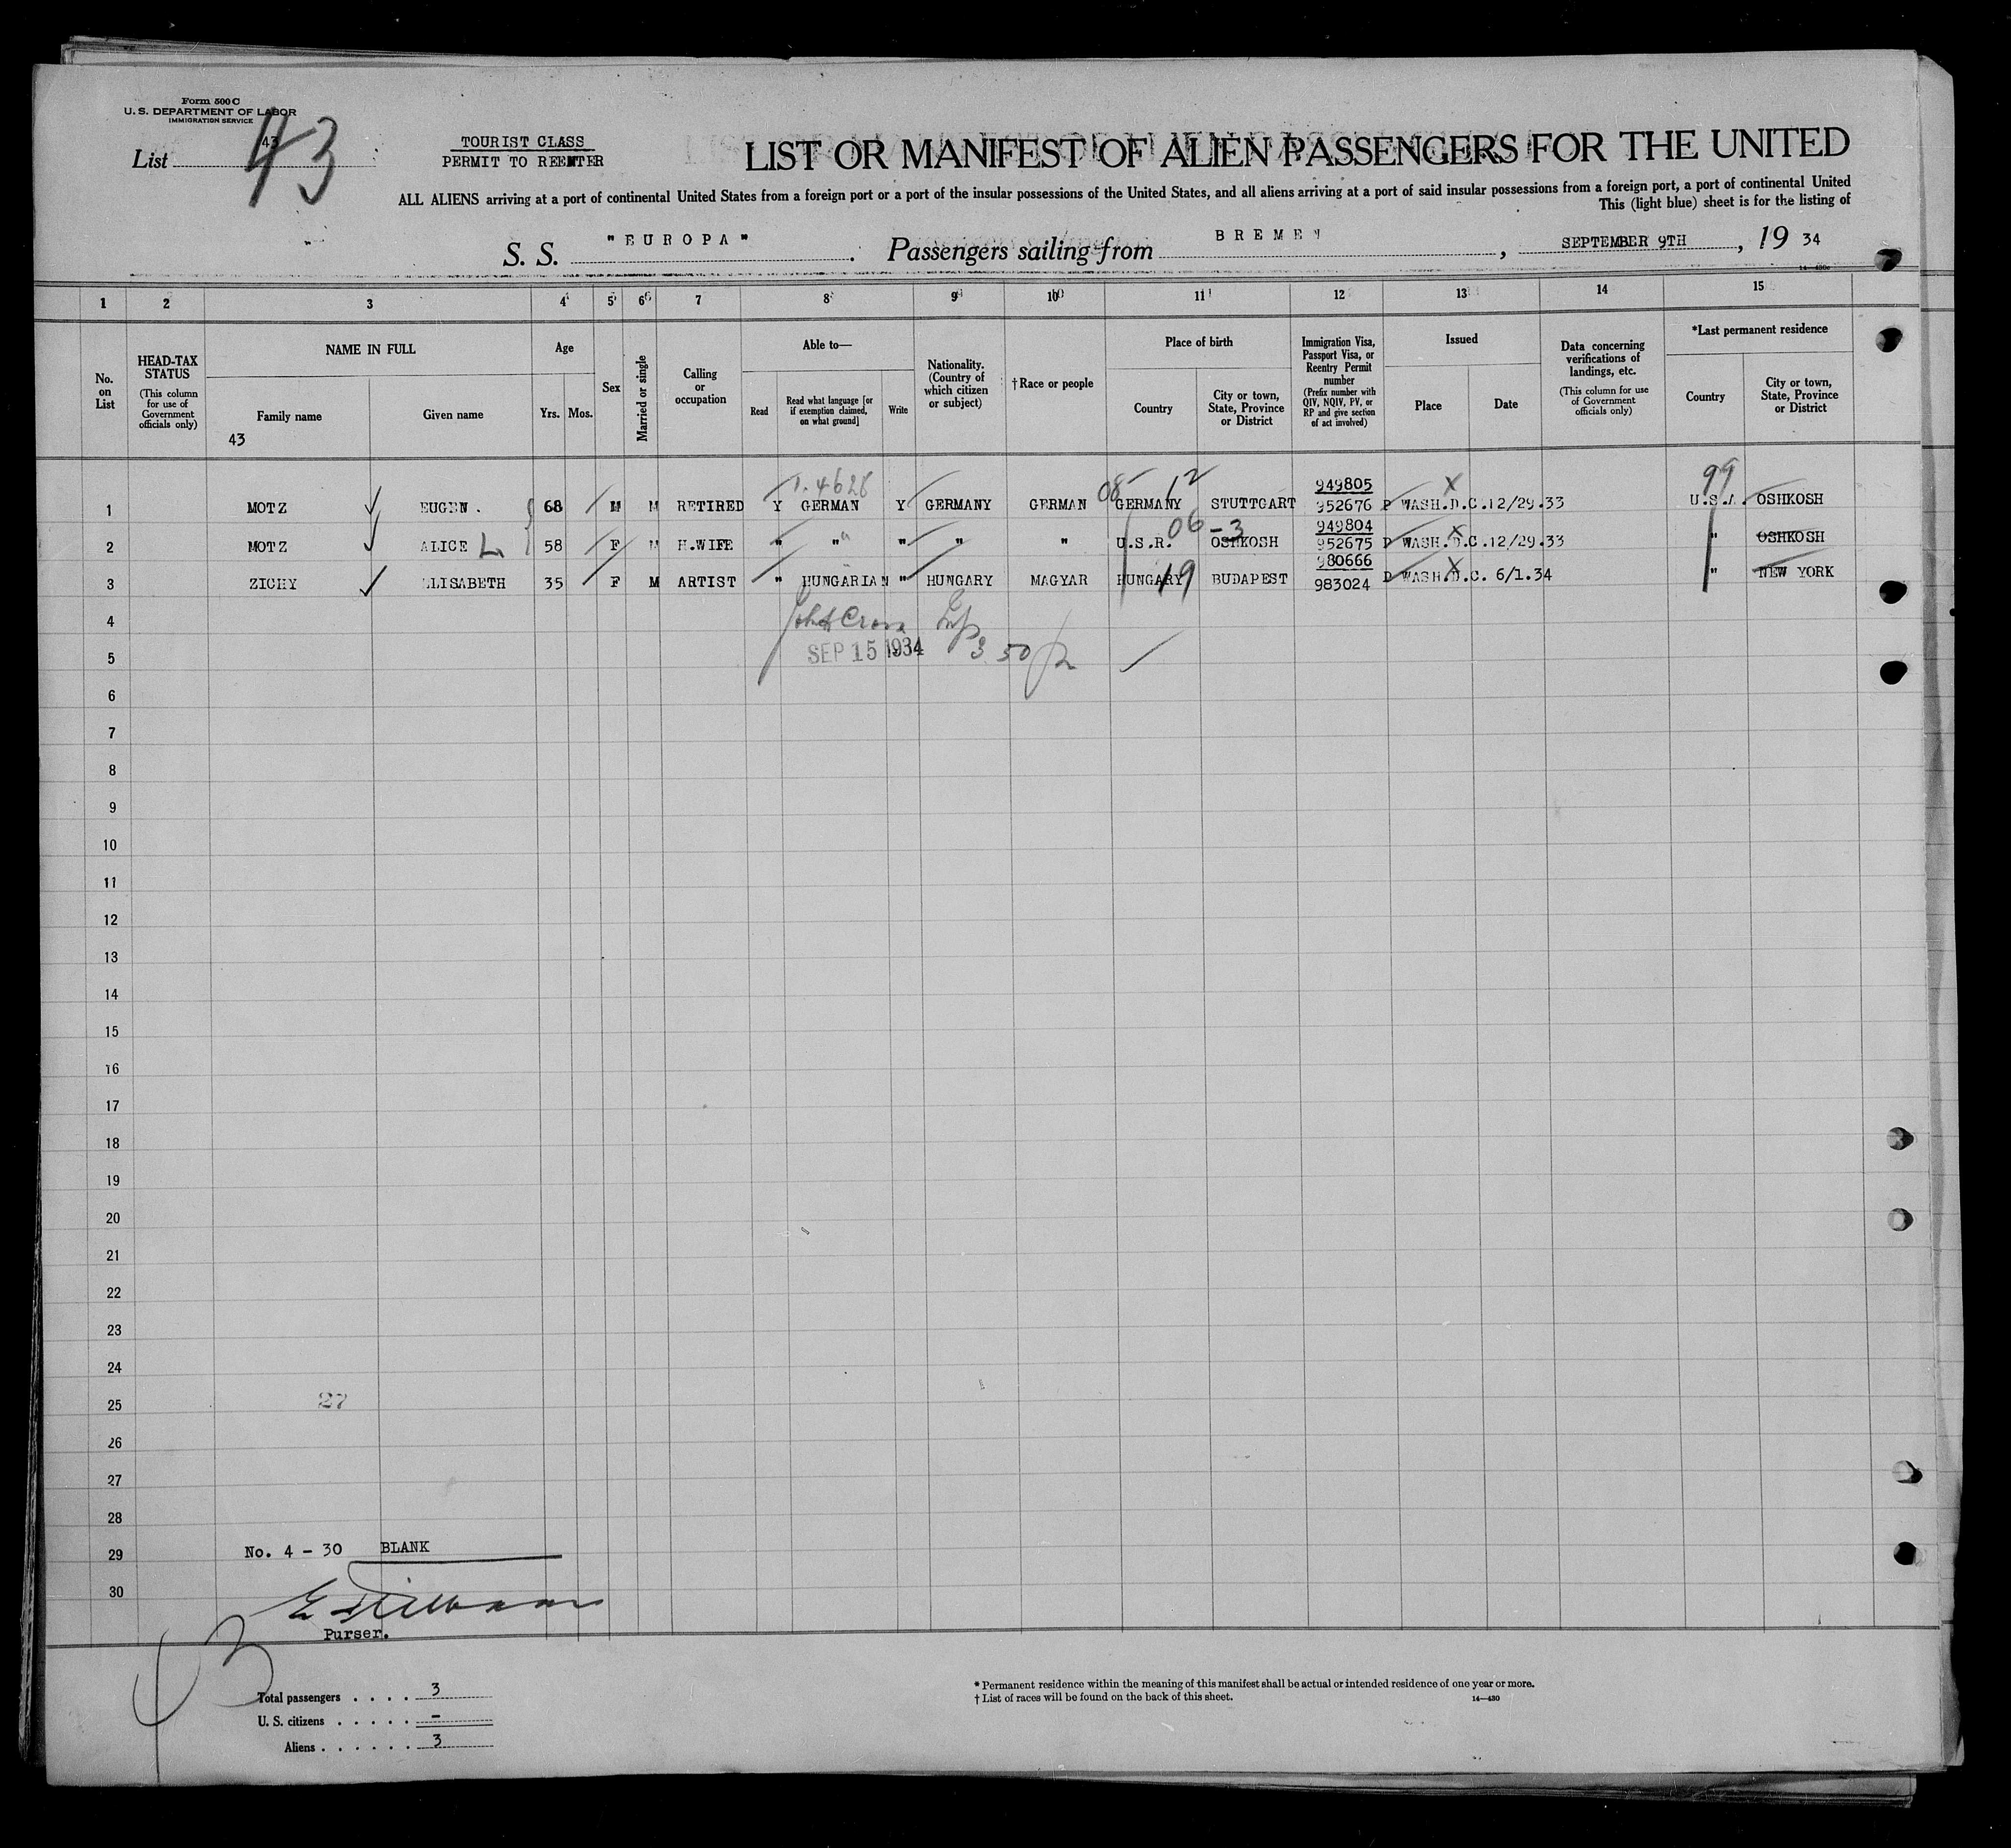 Form 500 C
U. S. DEPARTMENT OF LABOR
IMMIGRATION SERVICE
43
List 43
TOURIST CLASS
PERMIT TO REENTER
LIST OR MANIFEST OF ALIEN PASSENGERS FOR THE UNITED
ALL ALIENS arriving at a port of continental United States from a foreign port or a port of the insular possessions of the United States, and all aliens arriving at a port of said insular possessions from a foreign port, a port of continental United
This (light blue) sheet is for the listing of
S. S. "EUROPA". Passengers sailing from BREMEN, SEPTEMBER 9TH, 19 34
1 2 3 4 5 6 7 8 9 10 11 12 13 14 15
No. on List
HEAD-TAX STATUS
(This column for use of Government officials only)
NAME IN FULL
Family name
Given name
43
Age
Yrs. Mos.
Sex
Married or single
Calling or occupation
Able to—
Read
Read what language [or if exemption claimed, on what ground]
Write
Nationality. (Country of which citizen or subject)
†Race or people
Place of birth
Country
City or town, State, Province or District
Immigration Visa, Passport Visa, or Reentry Permit number
(Prefix number with QIV, NQIV, PV, or RP and give section of act involved)
Issued
Place
Date
Data concerning verifications of landings, etc.
(This column for use of Government officials only)
*Last permanent residence
Country
City or town, State, Province or District
1. 4628 08 12 949805 X 99
1 MOTZ EUGEN. 68 M M RETIRED Y GERMAN Y GERMANY GERMAN GERMANY STUTTGART 952676 P WASH.D.C. 12/29.33 U.S.A. OSHKOSH
06 -3 949804 X
2 MOTZ ALICE L. 58 F M H.WIFE " " " " " U.S.R. OSHKOSH 952675 P WASH.D.C. 12/29.33 " OSHKOSH
980666 X
3 ZICHY ELISABETH 35 F M ARTIST " HUNGARIAN " HUNGARY MAGYAR HUNGARY 19 BUDAPEST 983024 P WASH.D.C. 6/1.34 " NEW YORK
4
5 SEP 15 1934 3 50
6
7
8
9
10
11
12
13
14
15
16
17
18
19
20
21
22
23
24
25 27
26
27
28
29 No. 4 - 30 BLANK
30
Purser.
43
Total passengers . . . . 3
U. S. citizens . . . . . –
Aliens . . . . . . 3
* Permanent residence within the meaning of this manifest shall be actual or intended residence of one year or more.
† List of races will be found on the back of this sheet.
14—430